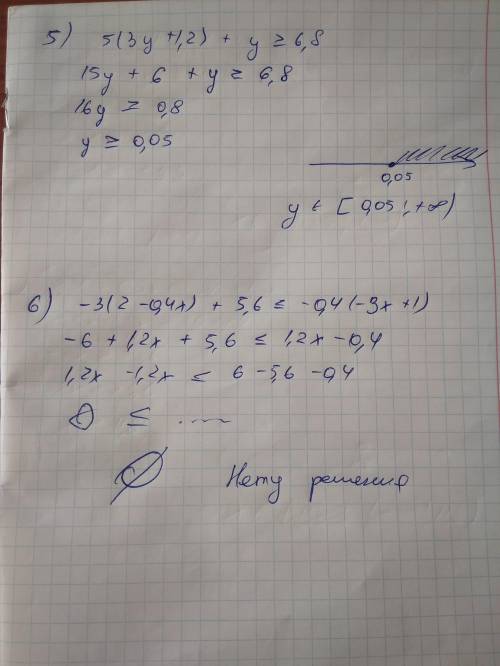 5) 5(3y + 1,2) + y ≥ 6,8
15y + 6 + y ≥ 6,8
16y ≥ 0,8
y ≥ 0,05
0,05
y ∈ [0,05; +∞)
6) -3(2 - 0,4x) + 5,6 ≤ -0,4(-3x + 1)
-6 + 1,2x + 5,6 ≤ 1,2x - 0,4
1,2x - 1,2x ≤ 6 - 5,6 - 0,4
0 ≤ ....
∅ Нету решения